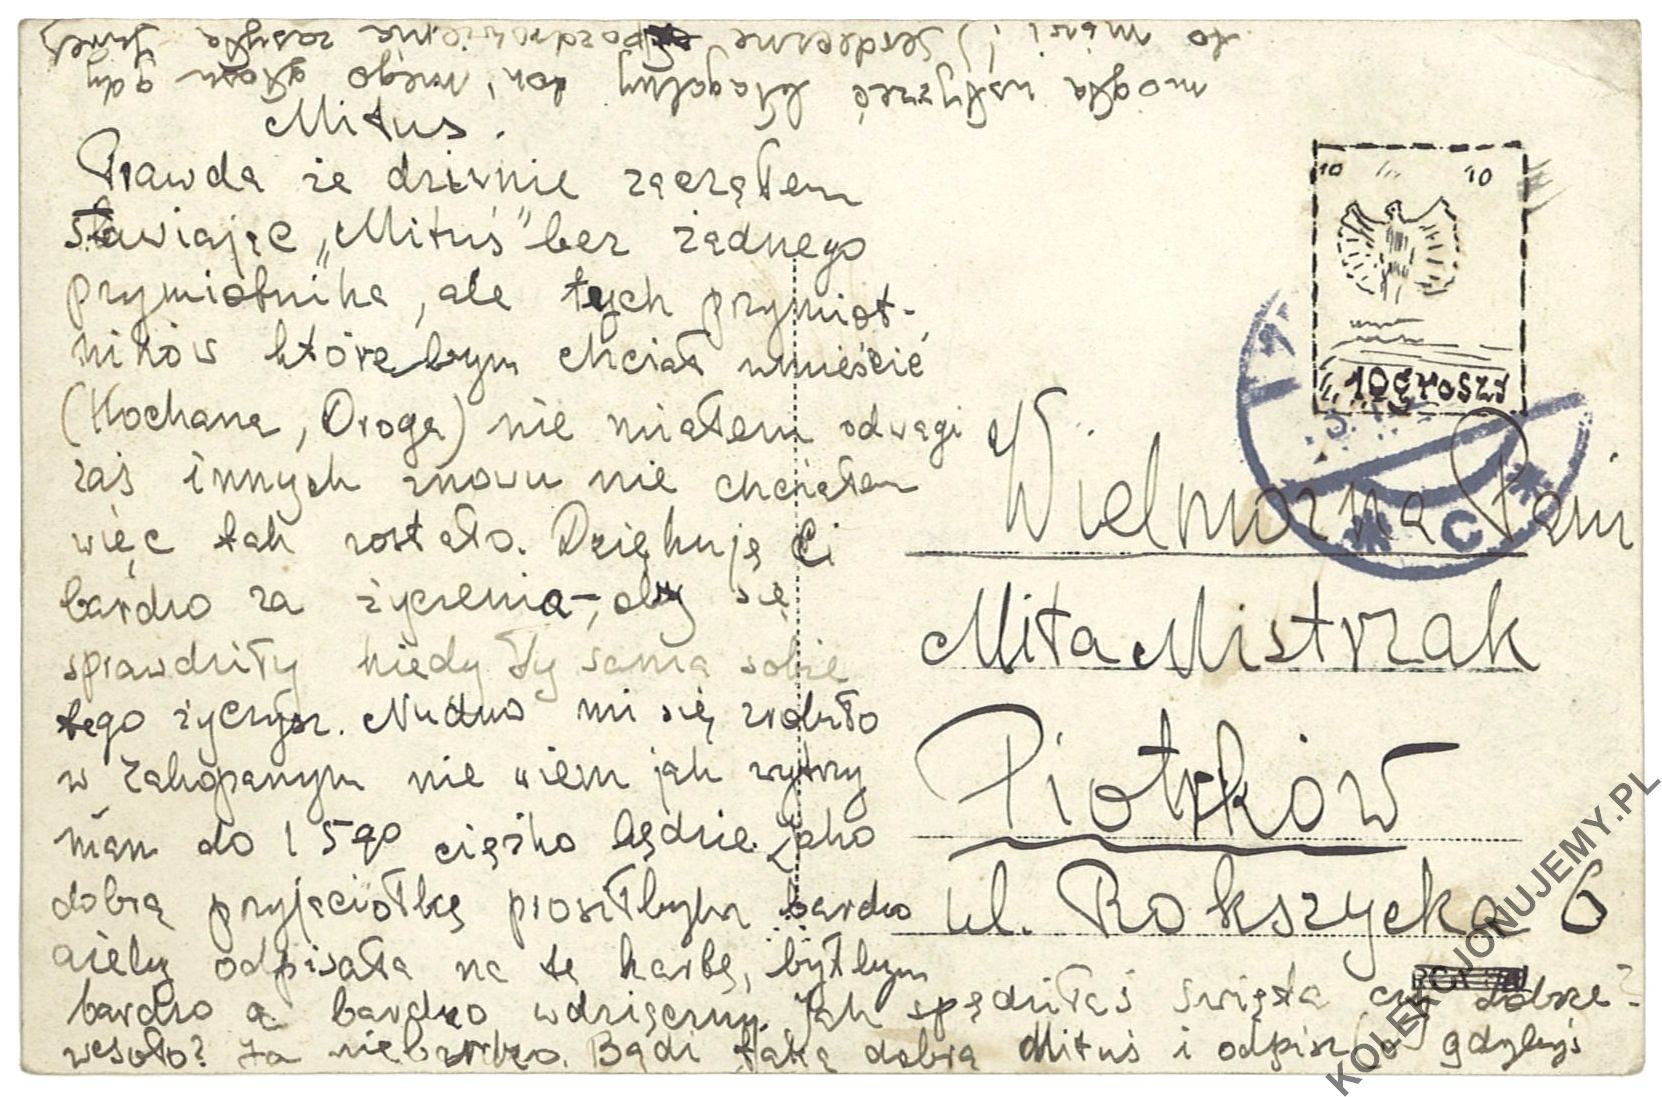 Mituś.
Prawda że dziwnie zacząłem
stawiając „Mituś” bez żadnego
przymiotnika, ale tych przymiot-
ników które bym chciał umieścić
(Kochana, Droga) nie miałem odwagi
zaś innych znowu nie chciałem
więc tak zostało. Dziękuję Ci
bardzo za życzenia-, oby się
sprawdziły kiedy Ty sama sobie
tego życzysz. Nudno mi się zrobiło
w Zakopanym nie wiem jak wytrzy
mam do 15go ciężko będzie. Jako
dobrą przyjaciółkę prosiłbym bardzo
ażeby odpisała na tę kartę, byłbym
bardzo a bardzo wdzięczny. Jak spędziłaś święta czy dobrze?
wesoło? Ja nie bardzo. Bądź taką dobrą Mituś i odpisz (o gdybyś
mogła usłyszeć błagalny ton mego głosu gdy
to mówi!) Serdeczne pozdrowienia zasyła Jurek
10 10
10 groszy
C
Wielmożna Pani
Mita Mistrzak
Piotrków
ul. Rokszycka 6
KOLEKCJONUJEMY.PL